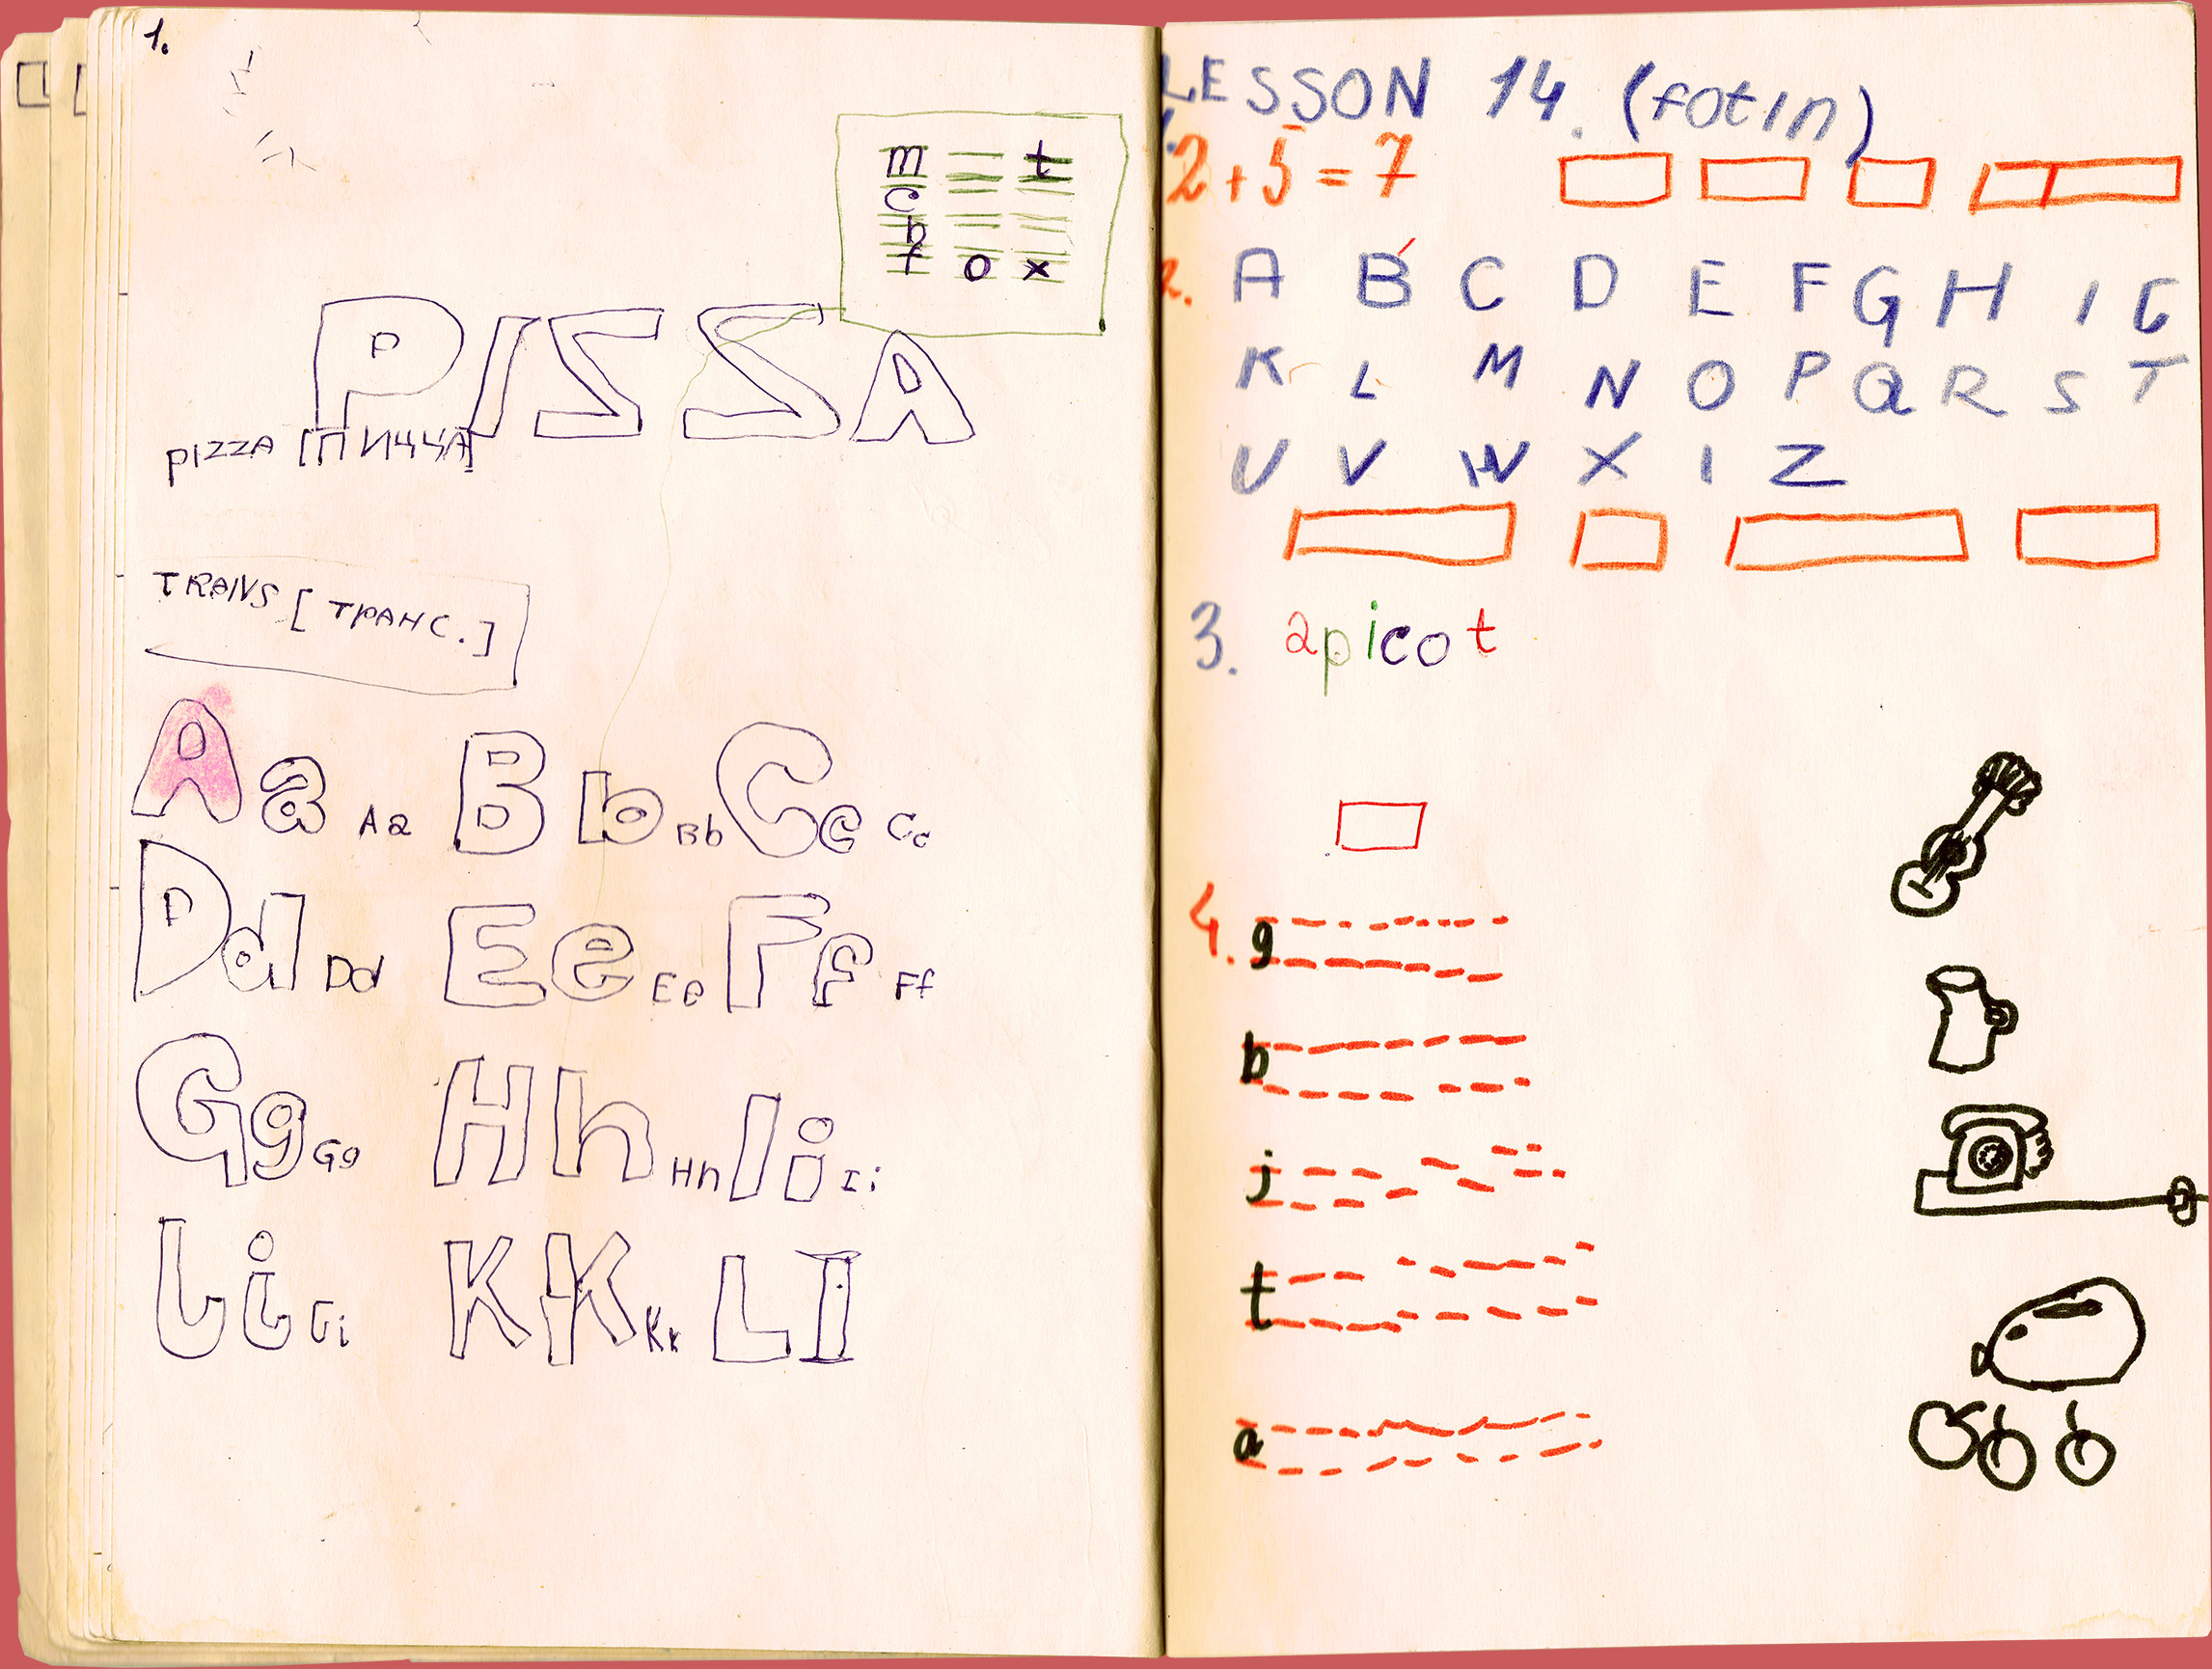 1.
m t
c
h
f o x
PISSA
pizzA [ПИЦЦА]
TRANS [ТРАНС.]
A a Aa B b Bb C c Cc
D d Dd E e Ee F f Ff
G g Gg H h Hh I i Ii
K K Kk L I
LESSON 14. (fotin)
1.
2+5=7
2. A B C D E F G H I G
K L M N O P Q R S T
U V W X I Z
3. apicot
4. g
b
j
t
a